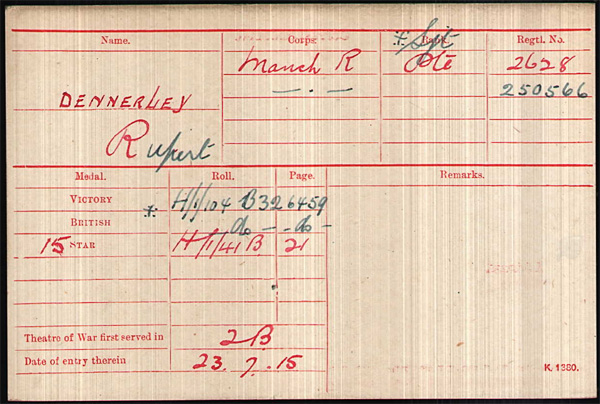 Name. Corps. Rank. Regtl. No.
* Sjt
Manch R Pte 2628
DENNERLEY — . — 250566
Rupert
Medal. Roll. Page. Remarks.
VICTORY * H/1/104 B32 6459
BRITISH do — - do -
15 STAR H/1/41 B. 21
Theatre of War first served in 2B
Date of entry therein 23. 7. 15
K. 1380.